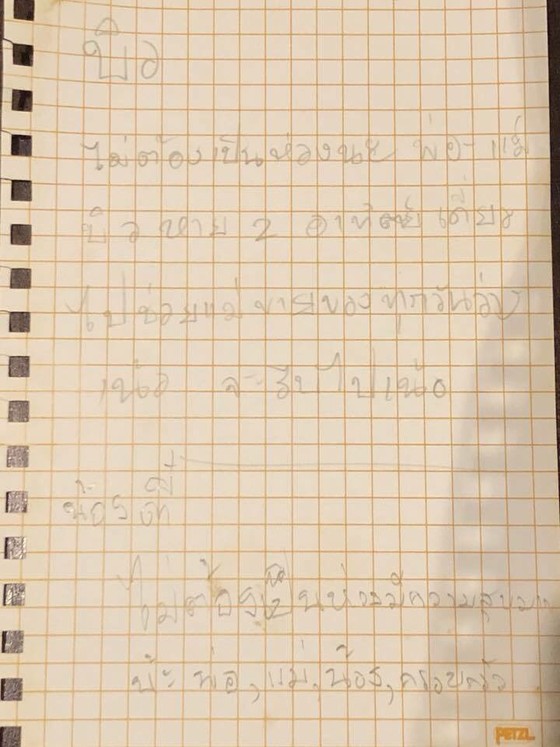 บิว
ไม่ต้องเป็นห่วงนะ พ่อ-แม่
บิว หาย 2 อาทิตย์ เดี๋ยว
ไปช่วยแม่ขายของทุกวัน
จะรีบไปเน้อ
น้องตี๋
ไม่ต้องเป็นห่วงมีความสุขมาก
นะ พ่อ, แม่, น้อง, ครอบครัว
PETZL